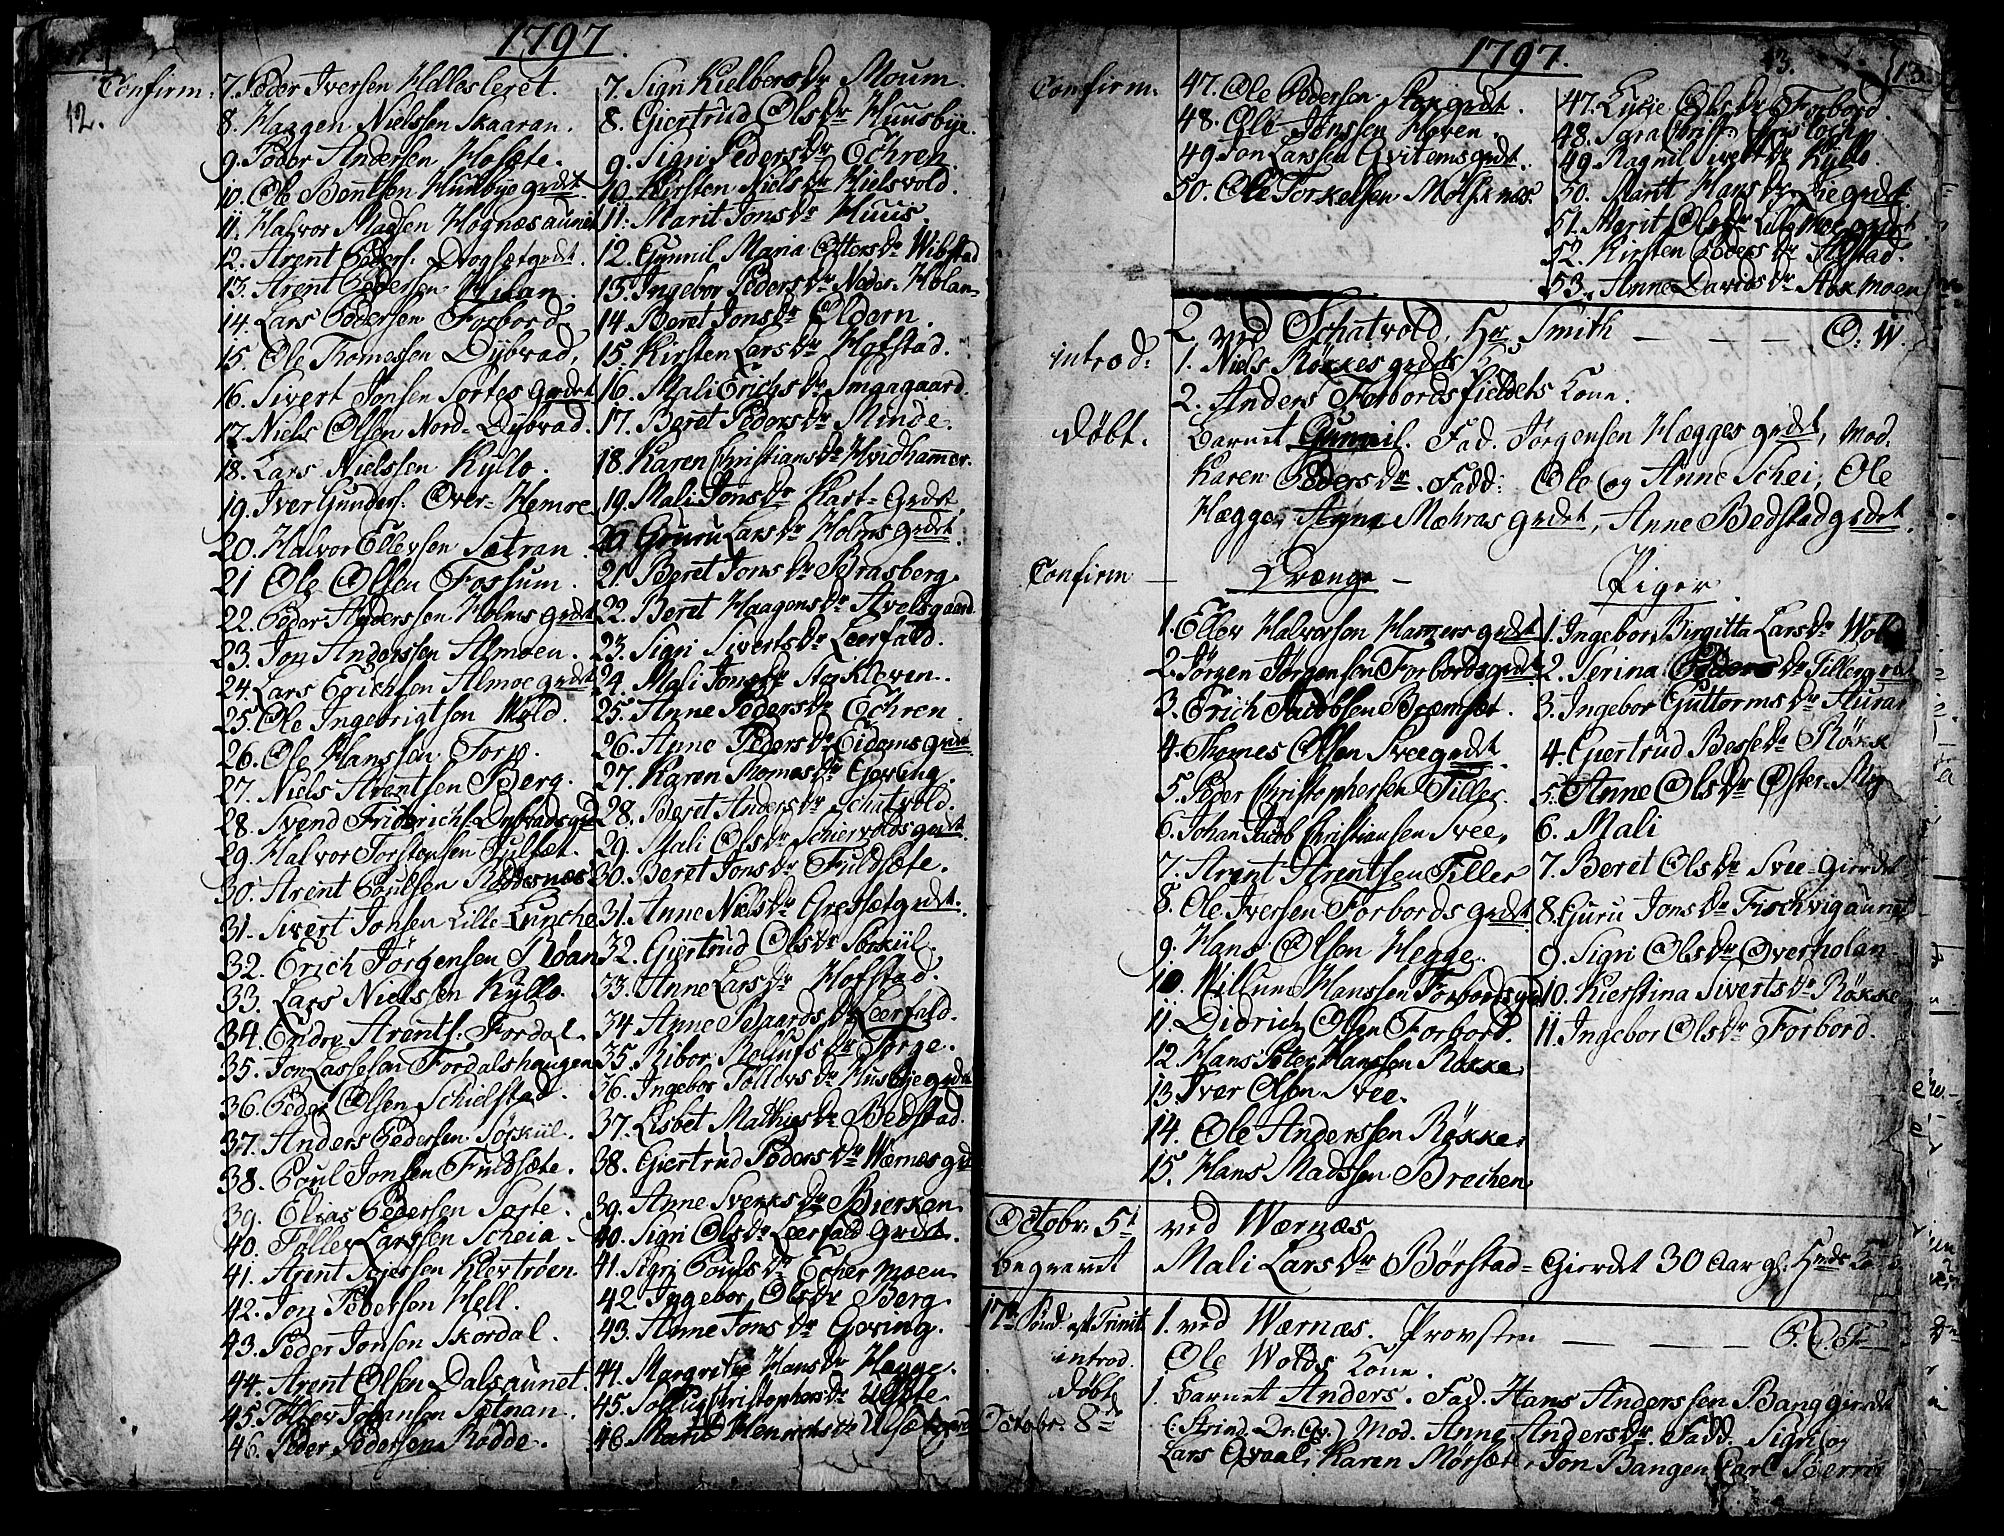 1797.
12.
Confirm:
7. Peder Iversen Hallesteret.
8. Haagen Nielssen Skaaran.
9. Peder Andersen Hofsæte.
10. Ole Bentsen Huusbye grdet
11. Halvor Madsen Hognæsaunet
12. Arent Peders: Drogsetgrdt.
13. Arent Pedersen Hilan.
14. Lars Pedersen Forbord
15. Ole Thomessen Dybvad,
16. Sivert Jonsen Sortes grdet
17. Niels Olsen Nord-Dybvad.
18. Lars Nielssen Kyllo.
19. Iver Gunders. Over-Hemre
20. Halvor Ellevsen Sætran
21 Ole Olsen Fossum.
22. Peder Anderssen Holms grdet
23. Jon Anderssen Almoen.
24. Lars Erichsen Almoe grdet
25. Ole Ingebrigtsen Wold.
26. Ole Hanssen Torp.
27. Niels Arentsen Berg.
28. Svend Friderichs. Dybvadsgrd
29. Halvor Torstensen Julset.
30. Arent Poulsen
31. Sivert Jonsen Lille-Lunche
32. Erich Jørgensen Roan
33. Lars Nielssen Kyllo.
34. Endre Arents. Fordal.
35. Jon Lassesen Fordalshaugen
36. Peder Olsen Schielstad.
37. Anders Pedersen Sørkiil.
38. Poul Jonsen Fuldsæte.
39. Elias Pedersen Sorte.
40. Tøller Larssen Scheia.
41. Arent Iversen Kløvtrøen
42. Jon Pedersen Hell.
43. Peder Jonsen Skordal.
44. Arent Olsen Dalsaunet.
45. Tøllev Johansen Sætnan.
46. Peder Pedersen Rødde.
7. Sigri Kielbersdr Moum.
8. Giertrud Olsdr Huusbye.
9. Sigri Pedersdr Echren.
10. Kirsten Nielsdr Hielsvold.
11. Marit Jonsdr Huus.
12. Gunnil Maria Ottersdr Wibstad
13. Ingebor Pedersdr Neder-Holan
14. Beret Jonsdr Eldern.
15. Kirsten Larsdr Hofstad.
16. Mali Erichsdr Ingagaard.
17. Beret Pedersdr Minde.
18. Karen Christiansdr Hvidhamer.
19. Mali Jonsdr Kart-Grdet
20 Guru Larsdr Holms grdet.
21. Beret Jonsdr Brasberg.
22. Beret Haagensdr Avelsgaard.
23. Sigri Sivertsdr Leerfald.
24. Mali Jonsdr Kleven.
25. Anne Pedersdr Echren.
26. Anne Pedersdr Eidoms grdet
27. Karen Thomasdr Geving.
28. Beret Andersdr Schatvold.
29. Mali Olsdr Schiervolds grdet
30. Beret Jonsdr Fuldsæte.
31. Anne Nielsdr Gressetgrdt.
32. Giertrud Olsdr Sørkiil.
33. Anne Larsdr Hofstad.
34. Anne Baardsdr Leerfald.
35. Ribor Rollufsdr Borge.
36. Ingebor Tollevsdr Husbyegrdet
37. Lisbet Mathiesdr Bedstad.
38. Giertrud Pedersdr Wærnes grd
39. Anne Sverksdr Bierkan
40. Sigri Olsdr Leerfald grdet.
41. Sigri Poulsdr Echermoen
42. Ingebor Olsdr Berg
43. Anne Jonsdr Geving.
44. Margrete Hansdr Hægge.
45. Christophersdr
46. Marit Henrichsdr
1797.
13.
13.
Confirm.
47. Ole Pedersen grdt.
48. Ole Jonssen Hoven.
49. Jon Larssen Qvitemsgrdt.
50. Ole Torkelsen Møsknæs.
47. Lucie Olsdr Forbord.
48. Sara
49. Ragnil Sivertsdr Kyllo.
50. Marit Hansdr grdt.
51. Marit Olsdr Lillemoe grdt.
52. Kirsten Pedersdr
53. Anne Davidsdr moen
2. ved Schatvold, Hr Smith — — — O. W.
introd: 1. Niels Røkkes grdets K.
2. Anders Forbordsfieldets Kone.
døbt. Barnet Gunnil. Fad. Jørgensen Hægges grdet, Mod.
Karen Pedersdr. Fadd: Ole og Anne Schei, Ole
Hægge, Agne Mæhras grdet, Anne Bedstad grdet.
Confirm — Drænge — Piger.
1. Ellev Halvorsen Hamers grdet
2. Jørgen Jørgensen Forbords grdet
3. Erich Jacobsen Bremset.
4. Thomes Olsen Svee grdet.
5. Peder Christophersen Tiller.
6. Johan Jacob Christiansen Svee,
7. Arent Arentsen Tiller
8. Ole Iversen Forbords grdet
9. Hans Olsen Hegge.
10. Willum Hanssen Forbordsgrd
11. Didrich Olsen Forbord.
12. Hans Peter Hanssen Røkke
13. Iver Olsen Svee.
14. Ole Anderssen Røkke.
15. Hans Madssen Brechen
1. Ingebor Birgitta Larsdr Wold
2. Serina Pedersdr Tillergrdt
3. Ingebor Guttormsdr Auran
4. Giertrud Bessesdr Røkk
5. Anne Olsdr Øster-Myr
6. Mali
7. Beret Olsdr Svee-Gierdet
8. Guru Jonsdr Fischvigaunet
9. Sigri Olsdr Overholan
10. Kierstina Sivertsdr Røkke
11. Ingebor Olsdr Forbord.
Octobr: 5t ved Wærnæs
begravet Mali Larsdr Børstad-Gierdet 30 Aar gl.
17de Sønd. eft Trinit. 1. ved Wærnæs. Provsten — — —
introd. Ole Wolds Kone.
døbt 1. Barnet Anders. Fad. Hans Anderssen Banggierdet
Octobr: 8de (Strind. Dr. Mod. Anne Andersdr. Fadd. Sigri og
Lars Qvaal, Karen Mørset, Jon Bangen, Carl